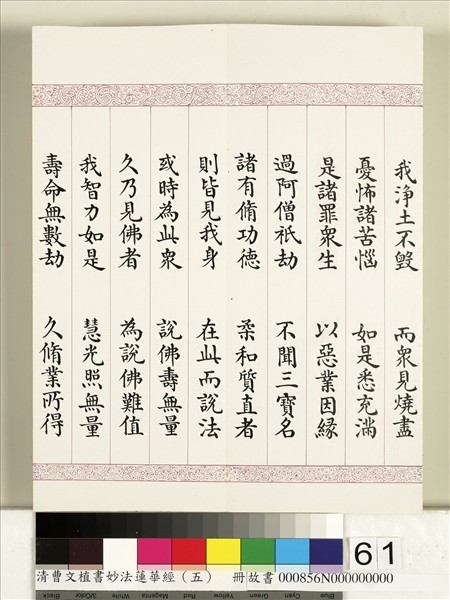 我淨土不毀　而衆見燒盡
憂怖諸苦惱　如是悉充滿
是諸罪衆生　以惡業因縁
過阿僧祇劫　不聞三寶名
諸有脩功德　柔和質直者
則皆見我身　在此而說法
或時為此衆　說佛壽無量
久乃見佛者　為說佛難值
我智力如是　慧光照無量
壽命無數劫　久脩業所得
61
清曹文植書妙法蓮華經（五）　冊故書 000856N000000000
Black 3/Color White Magenta Red Yellow Green Cyan Blue